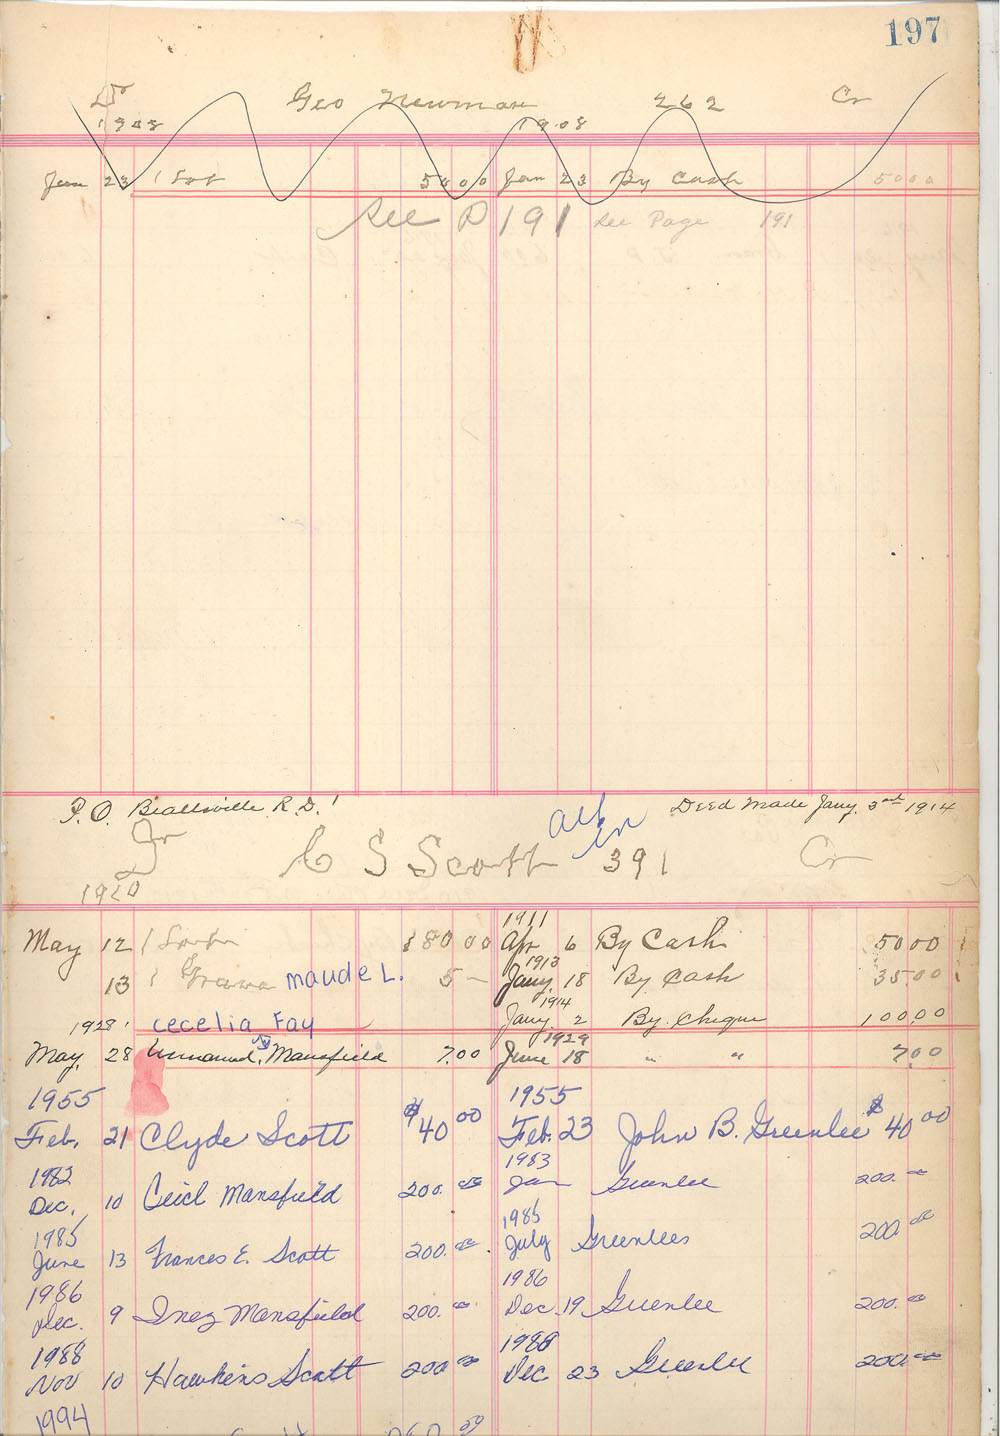 197
Dr Geo Newman 262 Cr
1908 1908
Jan 23 1 Lot 50 00 Jan 23 By Cash 50 00
See P 191 See Page 191
P.O. Beallsville R.D. 1 Deed Made Jany. 2nd 1914
Dr C S Scott 391 Cr
1910 1911
May 12 1 Lot 180 00 Apr 6 By Cash 50 00
1913
13 1 Grave Maude L. 5 – Jany. 18 By Cash 35 00
1914
1928 Cecelia Fay Jany. 2 By Cheque 100.00
1929
May. 28 Unnamed, Mansfield 7.00 June 18 " " 7.00
1955 1955
Feb. 21 Clyde Scott $40 00 Feb. 23 John B. Greenlee $40 00
1982 1983
Dec. 10 Ceicl Mansfield 200. 00 Jan Greenlee 200. 00
1985 1985
June 13 Frances E. Scott 200. 00 July Greenlees 200 00
1986 1986
Dec. 9 Inez Mansfield 200. 00 Dec. 19 Greenlee 200. 00
1988 1988
Nov 10 Hawkins Scott 200 00 Dec 23 Greenlee 200. 00
1994